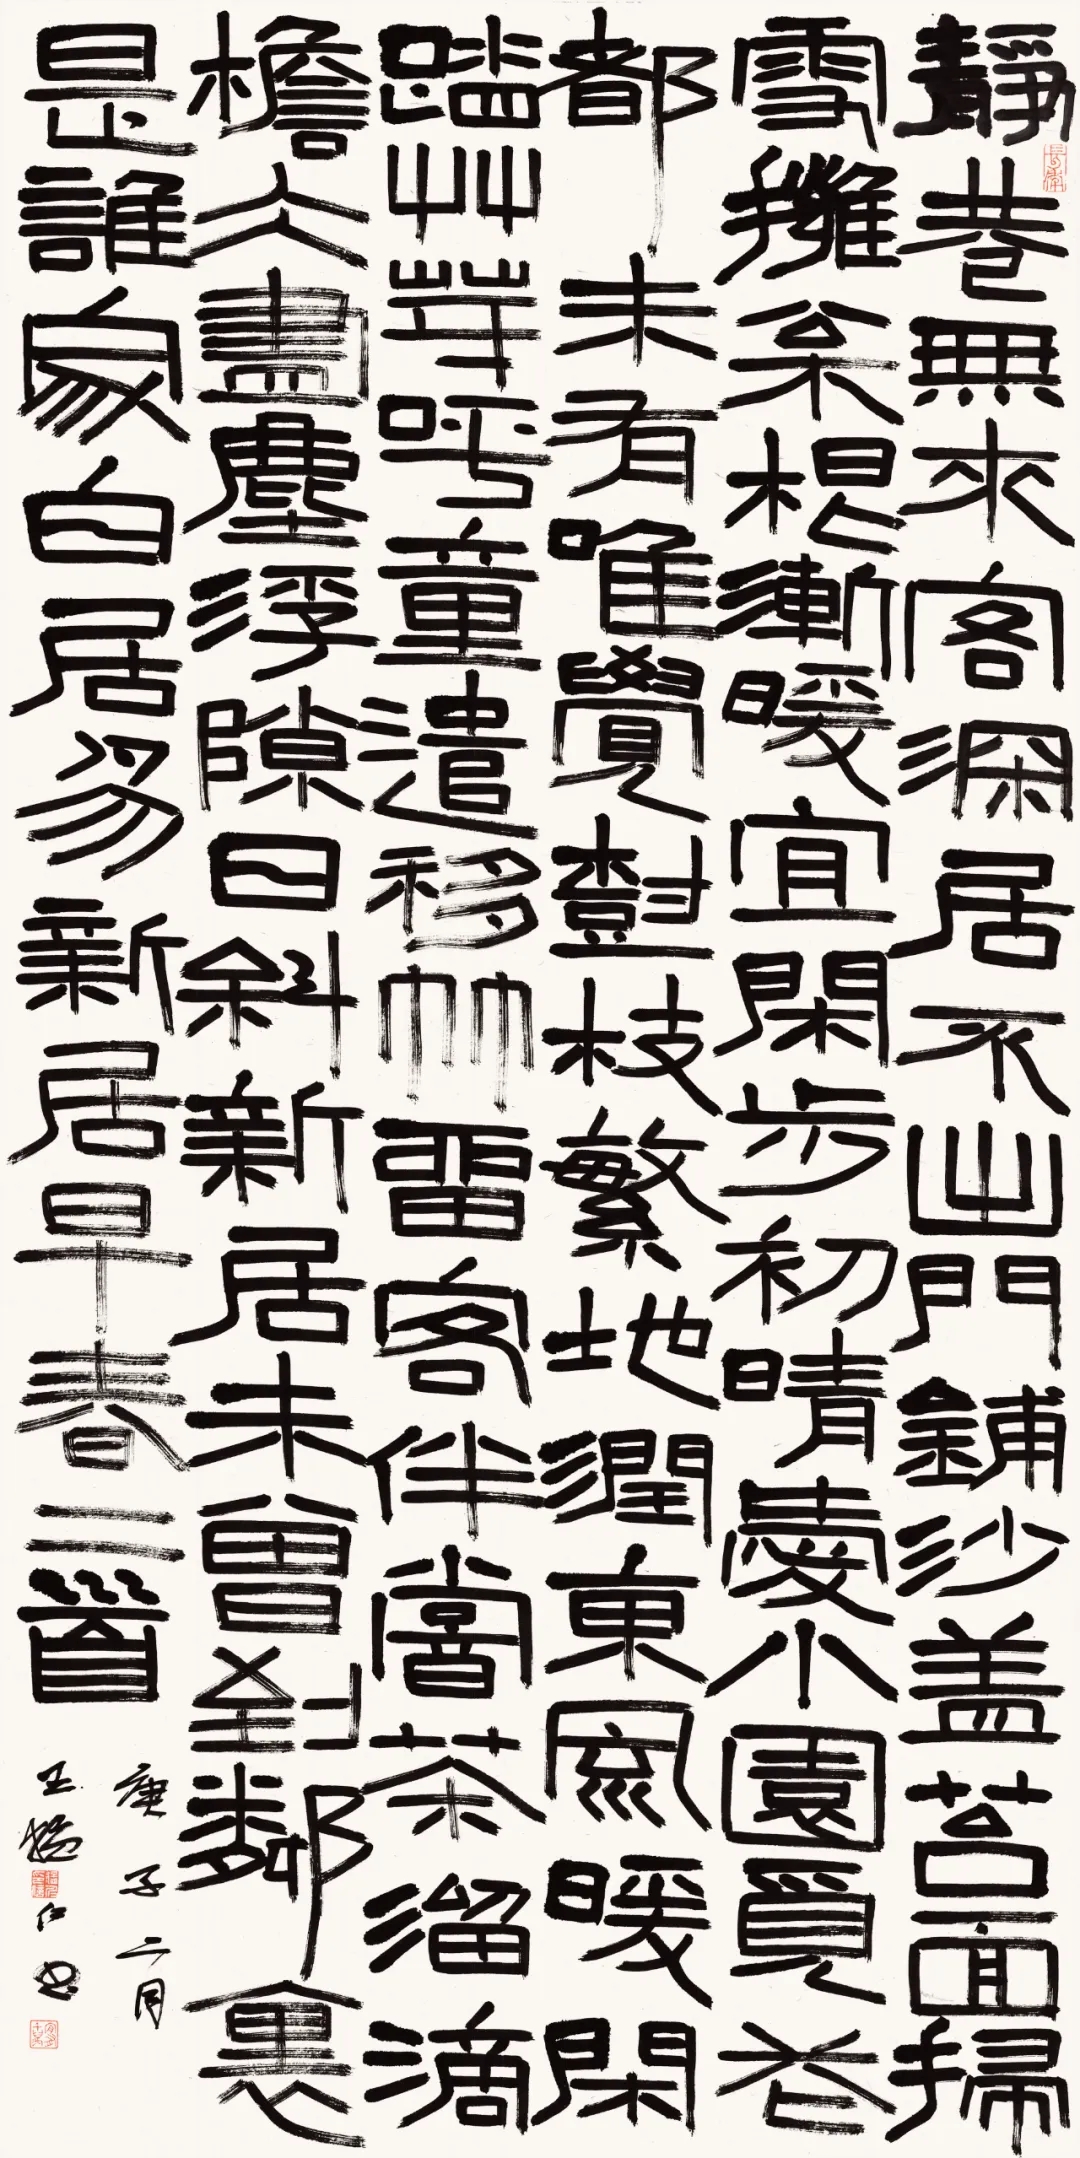 靜巷無來客深居不出門鋪沙盖苔面掃
雪擁枀根漸暖宜閑步初晴愛小園覓花
都未有唯覺樹枝繁地潤東風暖閑
踏艸芽呼童遣移竹留客伴嘗茶溜滴
檐仌盡塵浮隙日斜新居未曾到鄰裏
是誰家白居易新居早春二首
庚子二月
王仁书